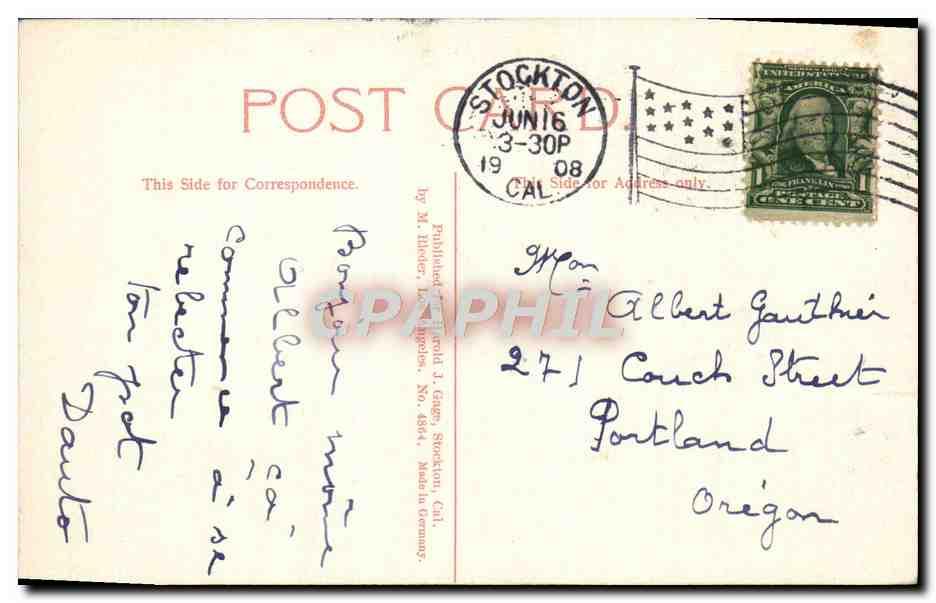 POST CARD.
This Side for Correspondence.
This Side for Address only.
STOCKTON
JUN 16
3-30P
19 08
CAL.
SERIES 1902
UNITED STATES OF
AMERICA
FRANKLIN
POSTAGE
1 ONE CENT 1
Mon
Albert Gauthier
271 Couch Street
Portland
Orégon
Published for Harold J. Gage, Stockton, Cal.
by M. Rieder, Los Angeles. No. 4864. Made in Germany.
Albert ça
à se
Ton
CPAPHIL